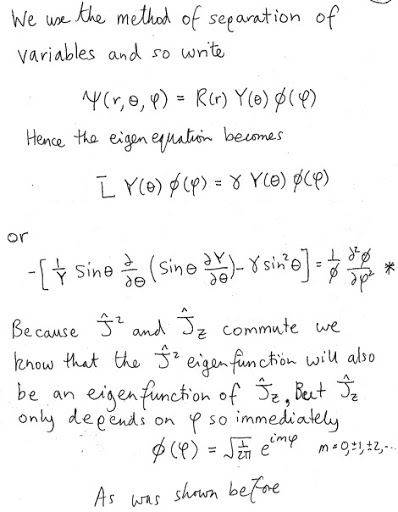 We use the method of separation of
variables and so write
Ψ(r,θ,φ) = R(r) Y(θ) ϕ(φ)
Hence the eigenequation becomes
L Y(θ) ϕ(φ) = γ Y(θ) ϕ(φ)
or
-[1/Y Sinθ ∂/∂θ (Sinθ ∂Y/∂θ) - γ sin²θ] = 1/ϕ ∂²ϕ/∂φ² *
Because Ĵ² and Ĵz commute we
know that the Ĵ² eigenfunction will also
be an eigenfunction of Ĵz, But Ĵz
only depends on φ so immediately
ϕ(φ) = √1/2π e^imφ m = 0, ±1, ±2, ...
As was shown before